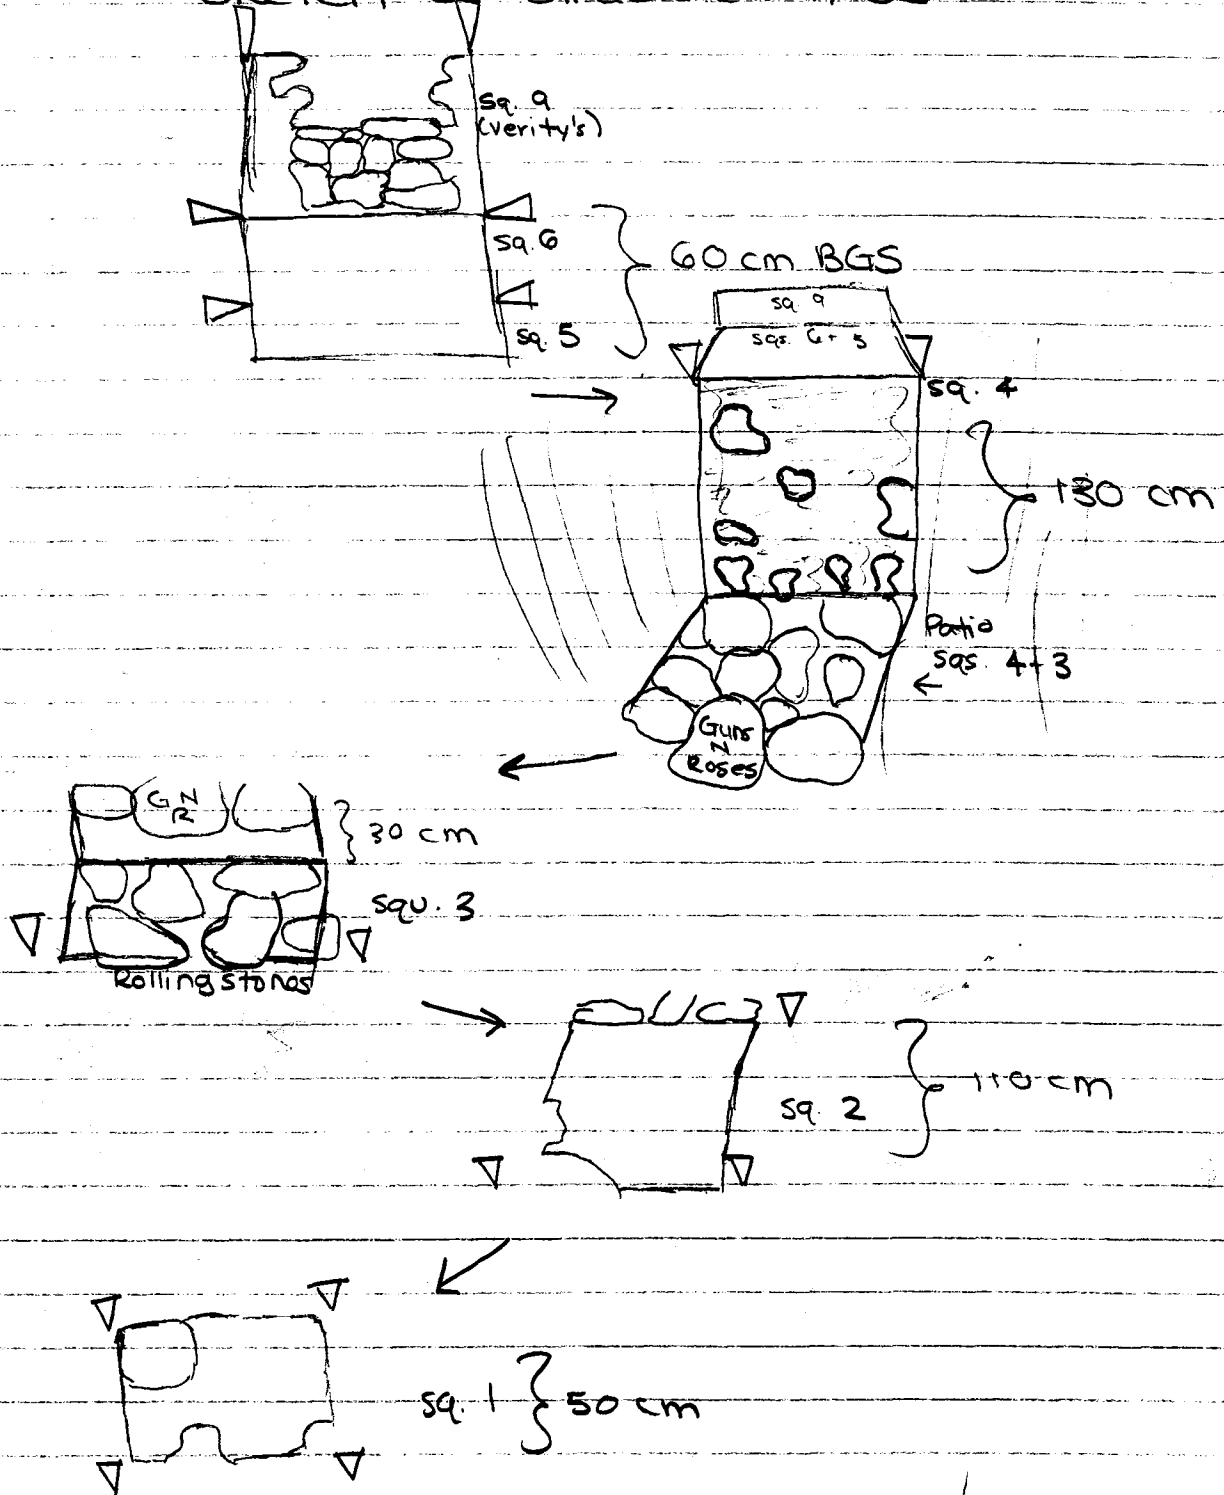 sq. 9
(verity's)
sq. 6
60 cm BGS
sq. 5
sq 9
sqs. 6+5
sq. 4
130 cm
Patio
sqs. 4+3
Guns
N
Roses
G N
R
30 cm
squ. 3
Rolling stones
sq. 2
110 cm
sq. 1
50 cm